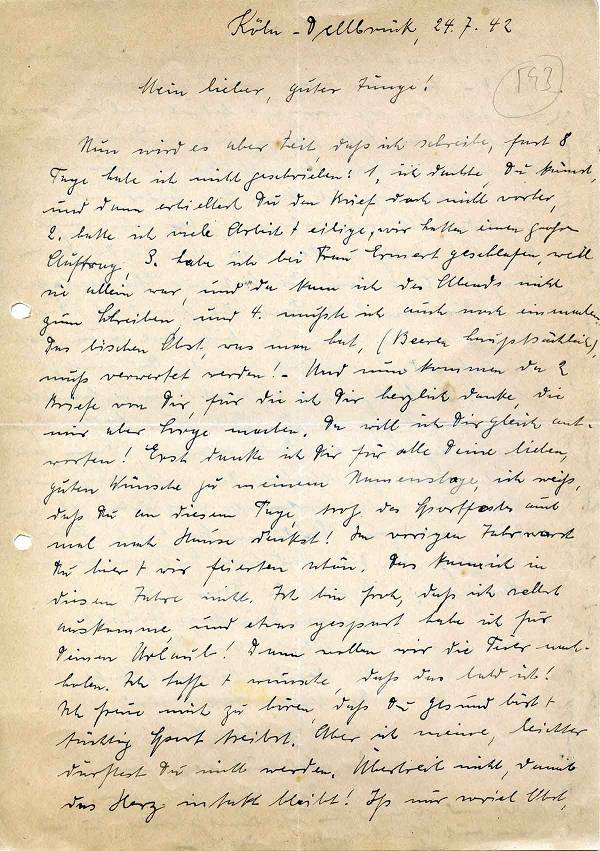 Köln-Dellbrück, 24.7.42
593
Mein lieber, guter Junge!
Nun wird es aber Zeit, daß ich schreibe, fast 8
Tage habe ich nicht geschrieben! 1, ich dachte, Du kämst,
und dann erhieltest Du den Brief doch nicht vorher,
2. hatte ich viele Arbeit + eilige, wir hatten einen großen
Auftrag, 3. habe ich bei Frau geschlafen, weil
sie allein war, und da kam ich des Abends nicht
zum Schreiben und 4. mußte ich auch noch einmachen.
Das bischen Obst, was man hat, (Beeren hauptsächlich),
muß verwertet werden! - Und nun kommen da 2
Briefe von Dir, für die ich Dir herzlich danke, die
mir aber Sorge machen. Da will ich Dir gleich ant-
worten! Erst danke ich Dir für alle Deine lieben,
guten Wünsche zu meinem Namenstage, ich weiß,
daß Du an diesem Tage, trotz des Sportfestes auch
mal nach Hause denkst! Im vorigen Jahr warst
Du hier + wir feierten schön. Das kann ich in
diesem Jahre nicht. Ich bin froh, daß ich selbst
auskomme, und etwas gespart habe ich für
Deinen Urlaub! Dann wollen wir die Feier nach-
holen. Ich hoffe + wünsche daß das bald ist!
Ich freue mich zu hören, daß Du gesund bist +
tüchtig Sport treibst. Aber ich meine, leichter
dürftest Du nicht werden. Übertreib nicht, damit
das Herz intakt bleibt! Iß nur Obst,